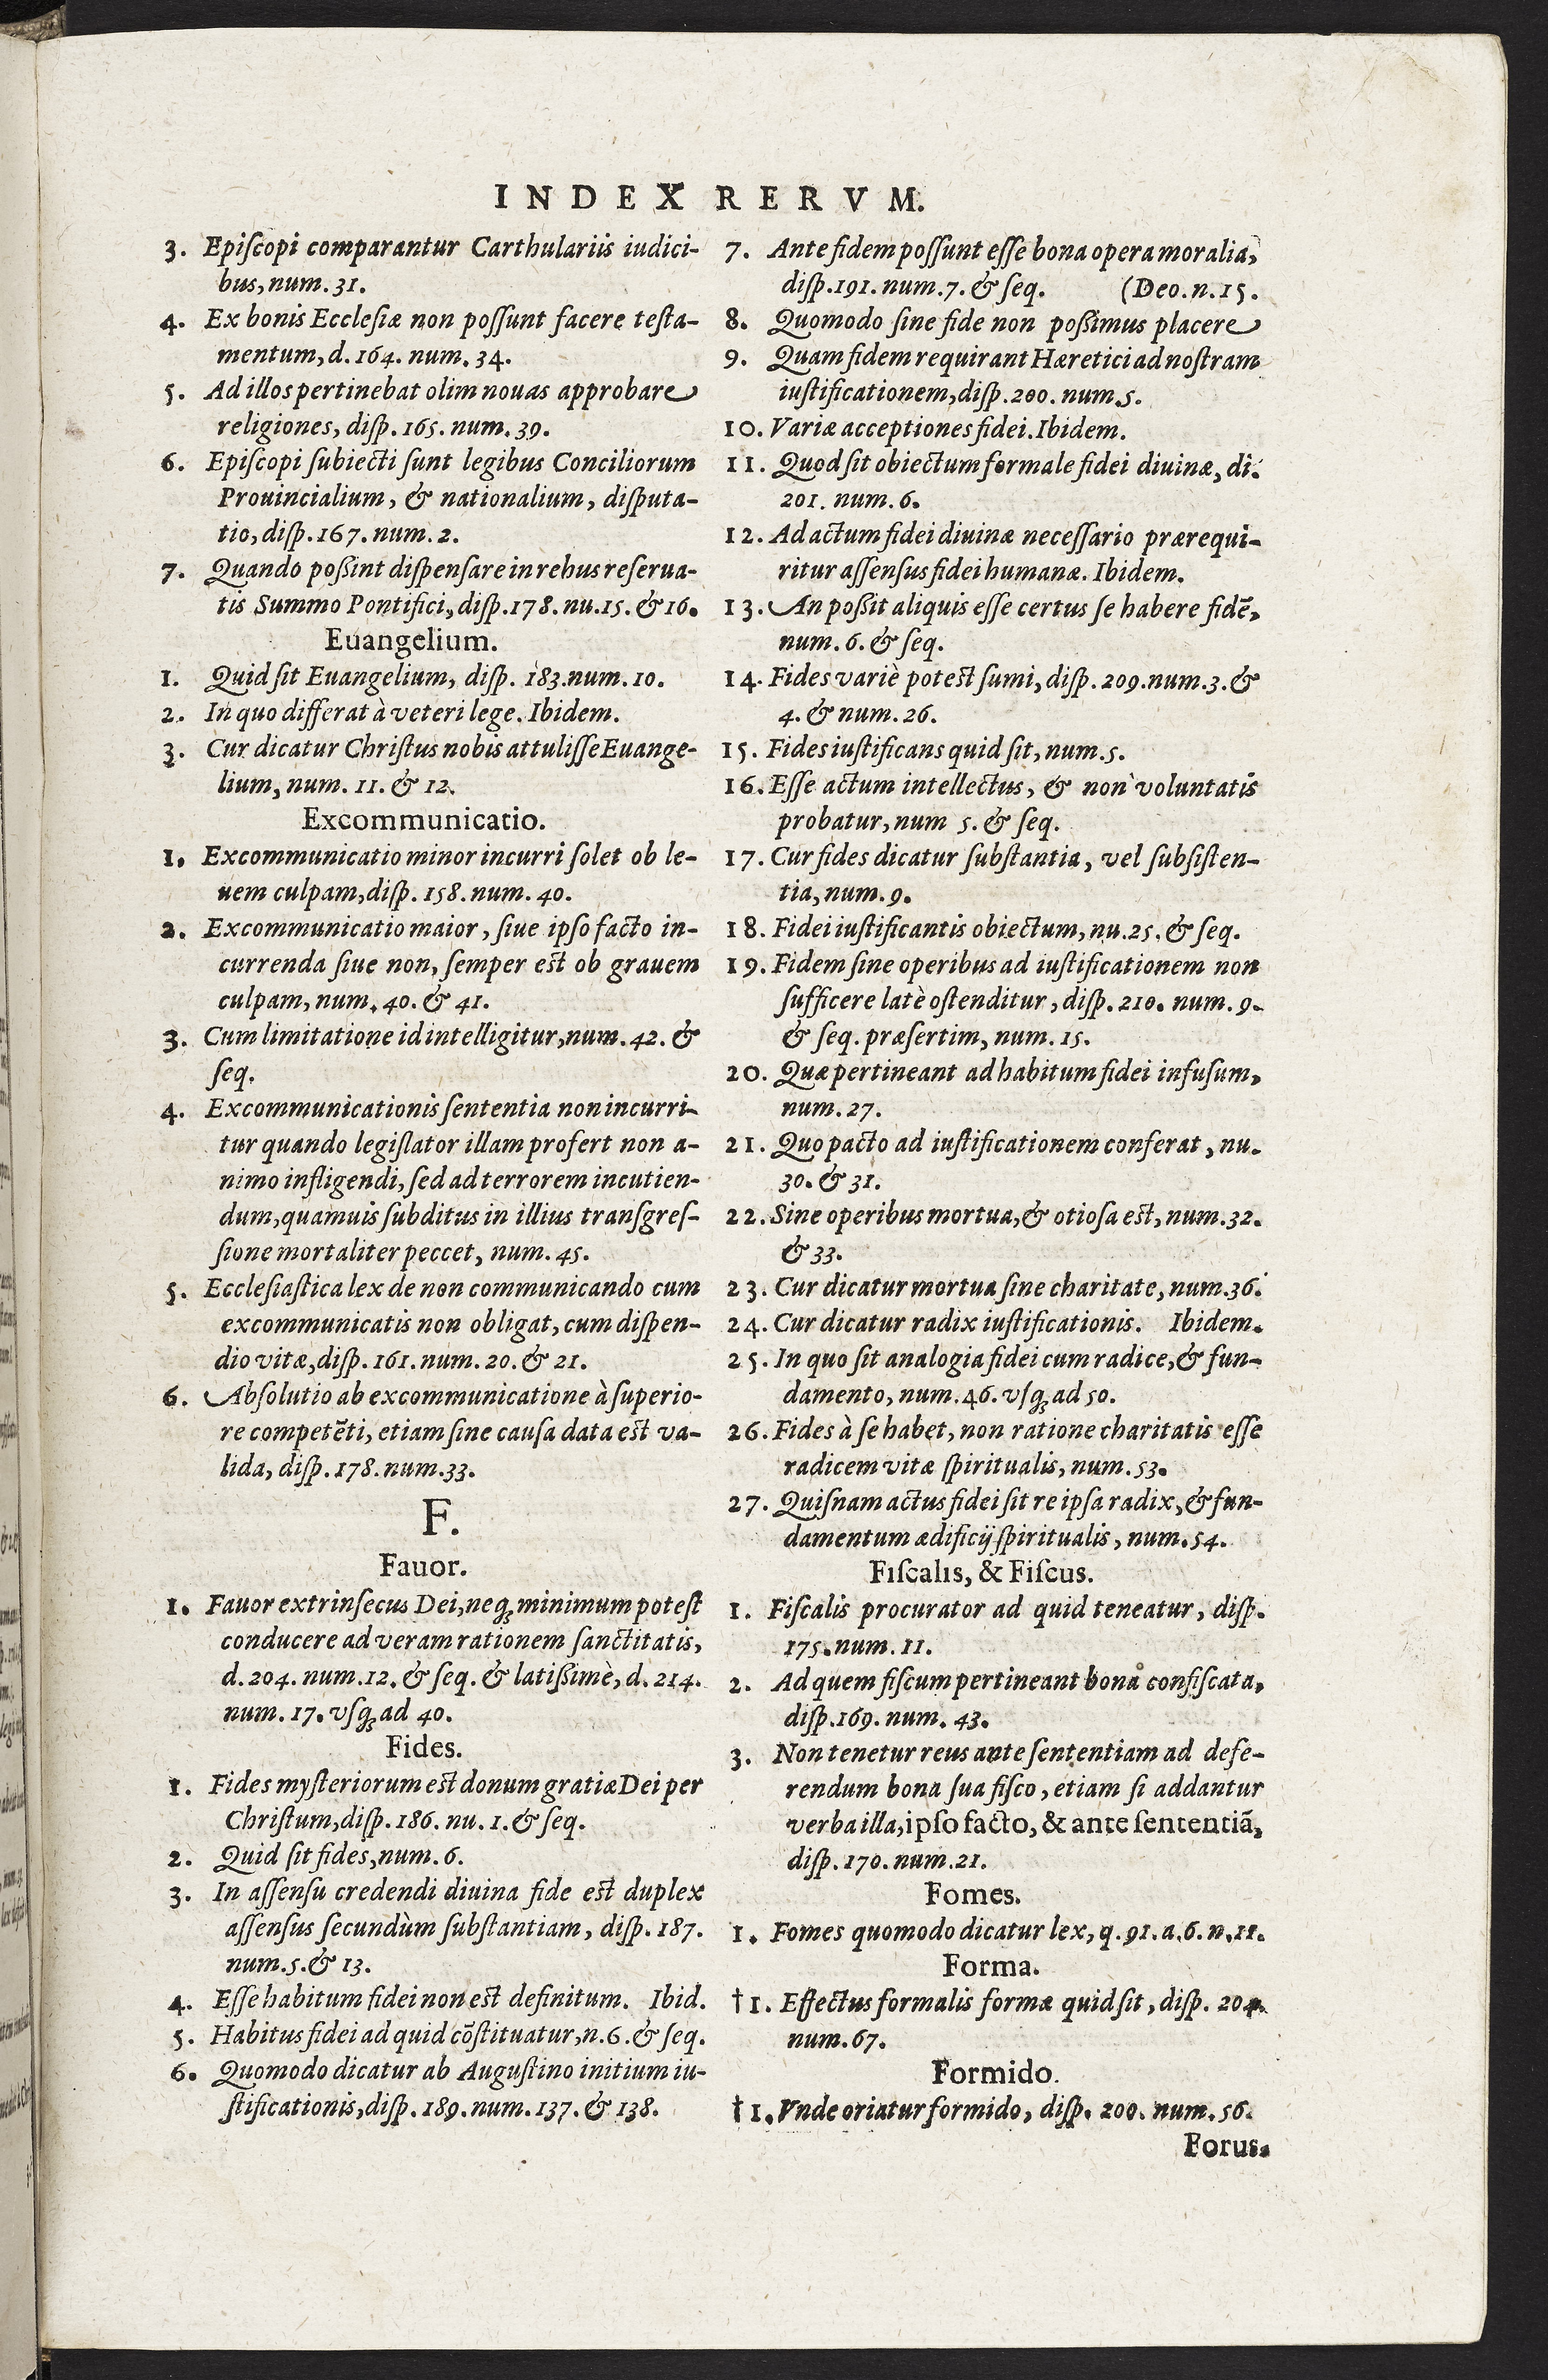 INDEX RERVM.
3. Epiſcopi comparantur Carthulariis iudici-
bus, num. 31.
4. Ex bonis Eccleſiæ non poſſunt facere teſta-
mentum, d. 164. num. 34.
5. Ad illos pertinebat olim nouas approbare
religiones, diſp. 165. num. 39.
6. Epiſcopi ſubiecti ſunt legibus Conciliorum
Prouincialium, & nationalium, diſputa-
tio, diſp. 167. num. 2.
7. Quando poßint diſpenſare in rebus reſerua-
tis Summo Pontifici, diſp. 178. nu. 15. & 16.
Euangelium.
1. Quid ſit Euangelium, diſp. 183. num. 10.
2. In quo differat à veteri lege. Ibidem.
3. Cur dicatur Chriſtus nobis attuliſſe Euange-
lium, num. 11. & 12.
Excommunicatio.
1. Excommunicatio minor incurri ſolet ob le-
uem culpam, diſp. 158. num. 40.
2. Excommunicatio maior, ſiue ipſo facto in-
currenda ſiue non, ſemper eſt ob grauem
culpam, num. 40. & 41.
3. Cum limitatione id intelligitur, num. 42. &
ſeq.
4. Excommunicationis ſententia non incurri-
tur quando legiſlator illam profert non a-
nimo infligendi, ſed ad terrorem incutien-
dum, quamuis ſubditus in illius tranſgreſ-
ſione mortaliter peccet, num. 45.
5. Eccleſiaſtica lex de non communicando cum
excommunicatis non obligat, cum diſpen-
dio vitæ, diſp. 161. num. 20. & 21.
6. Abſolutio ab excommunicatione à ſuperio-
re competēti, etiam ſine cauſa data eſt va-
lida, diſp. 178. num. 33.
F.
Fauor.
1. Fauor extrinſecus Dei, neq; minimum poteſt
conducere ad veram rationem ſanctitatis,
d. 204. num. 12. & ſeq. & latißimè, d. 214.
num. 17. vſq; ad 40.
Fides.
1. Fides myſteriorum eſt donum gratiæ Dei per
Chriſtum, diſp. 186. nu. 1. & ſeq.
2. Quid ſit fides, num. 6.
3. In aſſenſu credendi diuina fide eſt duplex
aſſenſus ſecundùm ſubſtantiam, diſp. 187.
num. 5. & 13.
4. Eſſe habitum fidei non eſt definitum. Ibid.
5. Habitus fidei ad quid cōſtituatur, n. 6. & ſeq.
6. Quomodo dicatur ab Auguſtino initium iu-
ſtificationis, diſp. 189. num. 137. & 138.
7. Ante fidem poſſunt eſſe bona opera moralia,
diſp. 191. num. 7. & ſeq. (Deo. n. 15.
8. Quomodo ſine fide non poßimus placere
9. Quam fidem requirant Hæretici ad noſtram
iuſtificationem, diſp. 200. num. 5.
10. Variæ acceptiones fidei. Ibidem.
11. Quod ſit obiectum formale fidei diuinæ, di.
201. num. 6.
12. Ad actum fidei diuinæ neceſſario prærequi-
ritur aſſenſus fidei humanæ. Ibidem.
13. An poßit aliquis eſſe certus ſe habere fidē,
num. 6. & ſeq.
14. Fides variè poteſt ſumi, diſp. 209. num. 3. &
4. & num. 26.
15. Fides iuſtificans quid ſit, num. 5.
16. Eſſe actum intellectus, & non voluntatis
probatur, num 5. & ſeq.
17. Cur fides dicatur ſubſtantia, vel ſubſiſten-
tia, num. 9.
18. Fidei iuſtificantis obiectum, nu. 25. & ſeq.
19. Fidem ſine operibus ad iuſtificationem non
ſufficere latè oſtenditur, diſp. 210. num. 9.
& ſeq. præſertim, num. 15.
20. Quæ pertineant ad habitum fidei infuſum,
num. 27.
21. Quo pacto ad iuſtificationem conferat, nu.
30. & 31.
22. Sine operibus mortua, & otioſa eſt, num. 32.
& 33.
23. Cur dicatur mortua ſine charitate, num. 36.
24. Cur dicatur radix iuſtificationis. Ibidem.
25. In quo ſit analogia fidei cum radice, & fun-
damento, num. 46. vſq; ad 50.
26. Fides à ſe habet, non ratione charitatis eſſe
radicem vitæ ſpiritualis, num. 53.
27. Quiſnam actus fidei ſit re ipſa radix, & fun-
damentum ædificij ſpiritualis, num. 54.
Fiſcalis, & Fiſcus.
1. Fiſcalis procurator ad quid teneatur, diſp.
175. num. 11.
2. Ad quem fiſcum pertineant bona confiſcata,
diſp. 169. num. 43.
3. Non tenetur reus ante ſententiam ad defe-
rendum bona ſua fiſco, etiam ſi addantur
verba illa, ipſo facto, & ante ſententiā,
diſp. 170. num. 21.
Fomes.
1. Fomes quomodo dicatur lex, q. 91. a. 6. n. 11.
Forma.
†1. Effectus formalis formæ quid ſit, diſp. 204.
num. 67.
Formido.
†1. Vnde oriatur formido, diſp. 200. num. 56.
Forus.